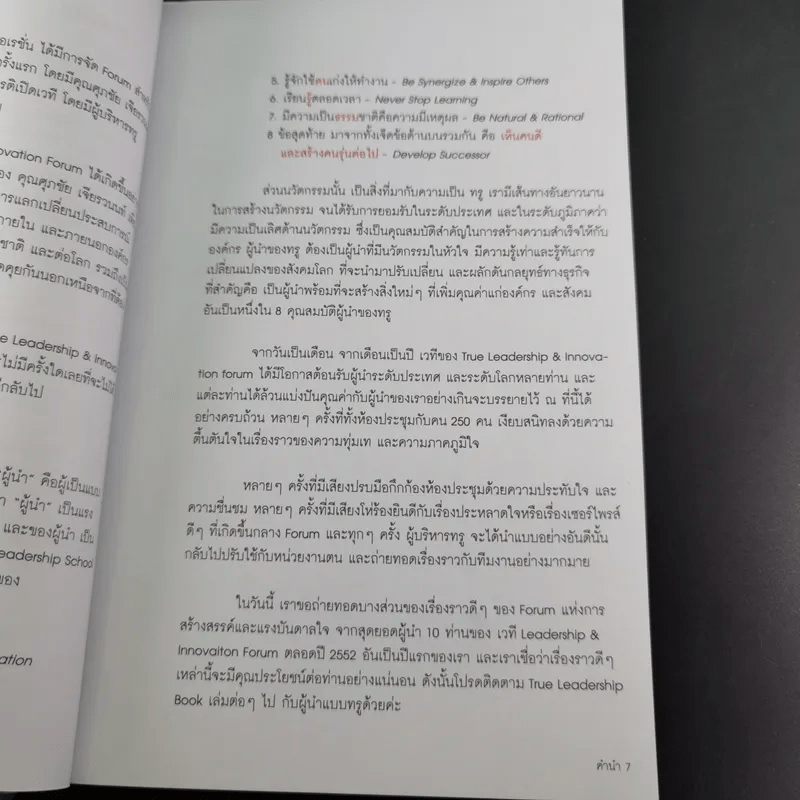 อเรชั่น ได้มีการจัด Forum
ครั้งแรก โดยมีคุณศุภชัย
รติเปิดเวที โดยมีผู้บริหารทรู
ovation Forum ได้เกิดขึ้น
อง คุณศุภชัย เจียรวนนท์
การแลกเปลี่ยนประสบการณ์
ภายใน และภายนอกองค์กร
ชาติ และต่อโลก รวมถึง
ดคุยกันนอกเหนือจากที่
ue Leadership & Innova
ะไม่มีครั้งใดเลยที่จะไม่ได้
กลับไป
"ผู้นำ" คือผู้เป็นแบบ
า "ผู้นำ" เป็นแรง
และของผู้นำ เป็น
eadership School
ของ
ation
5. รู้จักใช้คนเก่งให้ทำงาน - Be Synergize & Inspire Others
6. เรียนรู้ตลอดเวลา - Never Stop Learning
7. มีความเป็นธรรมชาติคือความมีเหตุผล - Be Natural & Rational
8 ข้อสุดท้าย มาจากทั้งเจ็ดข้อด้านบนรวมกัน คือ เห็นคนดี
และสร้างคนรุ่นต่อไป - Develop Successor
ส่วนนวัตกรรมนั้น เป็นสิ่งที่มากับความเป็น ทรู เรามีเส้นทางอันยาวนาน
ในการสร้างนวัตกรรม จนได้รับการยอมรับในระดับประเทศ และในระดับภูมิภาคว่า
มีความเป็นเลิศด้านนวัตกรรม ซึ่งเป็นคุณสมบัติสำคัญในการสร้างความสำเร็จให้กับ
องค์กร ผู้นำของทรู ต้องเป็นผู้นำที่มีนวัตกรรมในหัวใจ มีความรู้เท่าและรู้ทันการ
เปลี่ยนแปลงของสังคมโลก ที่จะนำมาปรับเปลี่ยน และผลักดันกลยุทธ์ทางธุรกิจ
ที่สำคัญคือ เป็นผู้นำพร้อมที่จะสร้างสิ่งใหม่ๆ ที่เพิ่มคุณค่าแก่องค์กร และสังคม
อันเป็นหนึ่งใน 8 คุณสมบัติผู้นำของทรู
จากวันเป็นเดือน จากเดือนเป็นปี เวทีของ True Leadership & Innova-
tion forum ได้มีโอกาสต้อนรับผู้นำระดับประเทศ และระดับโลกหลายท่าน และ
แต่ละท่านได้ล้วนแบ่งปันคุณค่ากับผู้นำของเราอย่างเกินจะบรรยายไว้ ณ ที่นี้ได้
อย่างครบถ้วน หลายๆ ครั้งที่ทั้งห้องประชุมกับคน 250 คน เงียบสนิทลงด้วยความ
ตื้นตันใจในเรื่องราวของความทุ่มเท และความภาคภูมิใจ
หลายๆ ครั้งที่มีเสียงปรบมือกึกก้องห้องประชุมด้วยความประทับใจ และ
ความชื่นชม หลายๆ ครั้งที่มีเสียงโห่ร้องยินดีกับเรื่องประหลาดใจหรือเรื่องเซอร์ไพรส์
ดีๆ ที่เกิดขึ้นกลาง Forum และทุกๆ ครั้ง ผู้บริหารทรู จะได้นำแบบอย่างอันดีนั้น
กลับไปปรับใช้กับหน่วยงานตน และถ่ายทอดเรื่องราวกับทีมงานอย่างมากมาย
ในวันนี้ เราขอถ่ายทอดบางส่วนของเรื่องราวดีๆ ของ Forum แห่งการ
สร้างสรรค์และแรงบันดาลใจ จากสุดยอดผู้นำ 10 ท่านของ เวที Leadership &
Innovaiton Forum ตลอดปี 2552 อันเป็นปีแรกของเรา และเราเชื่อว่าเรื่องราวดีๆ
เหล่านี้จะมีคุณประโยชน์ต่อท่านอย่างแน่นอน ดังนั้นโปรดติดตาม True Leadership
Book เล่มต่อๆ ไป กับผู้นำแบบทรูด้วยค่ะ
คำนำ 7